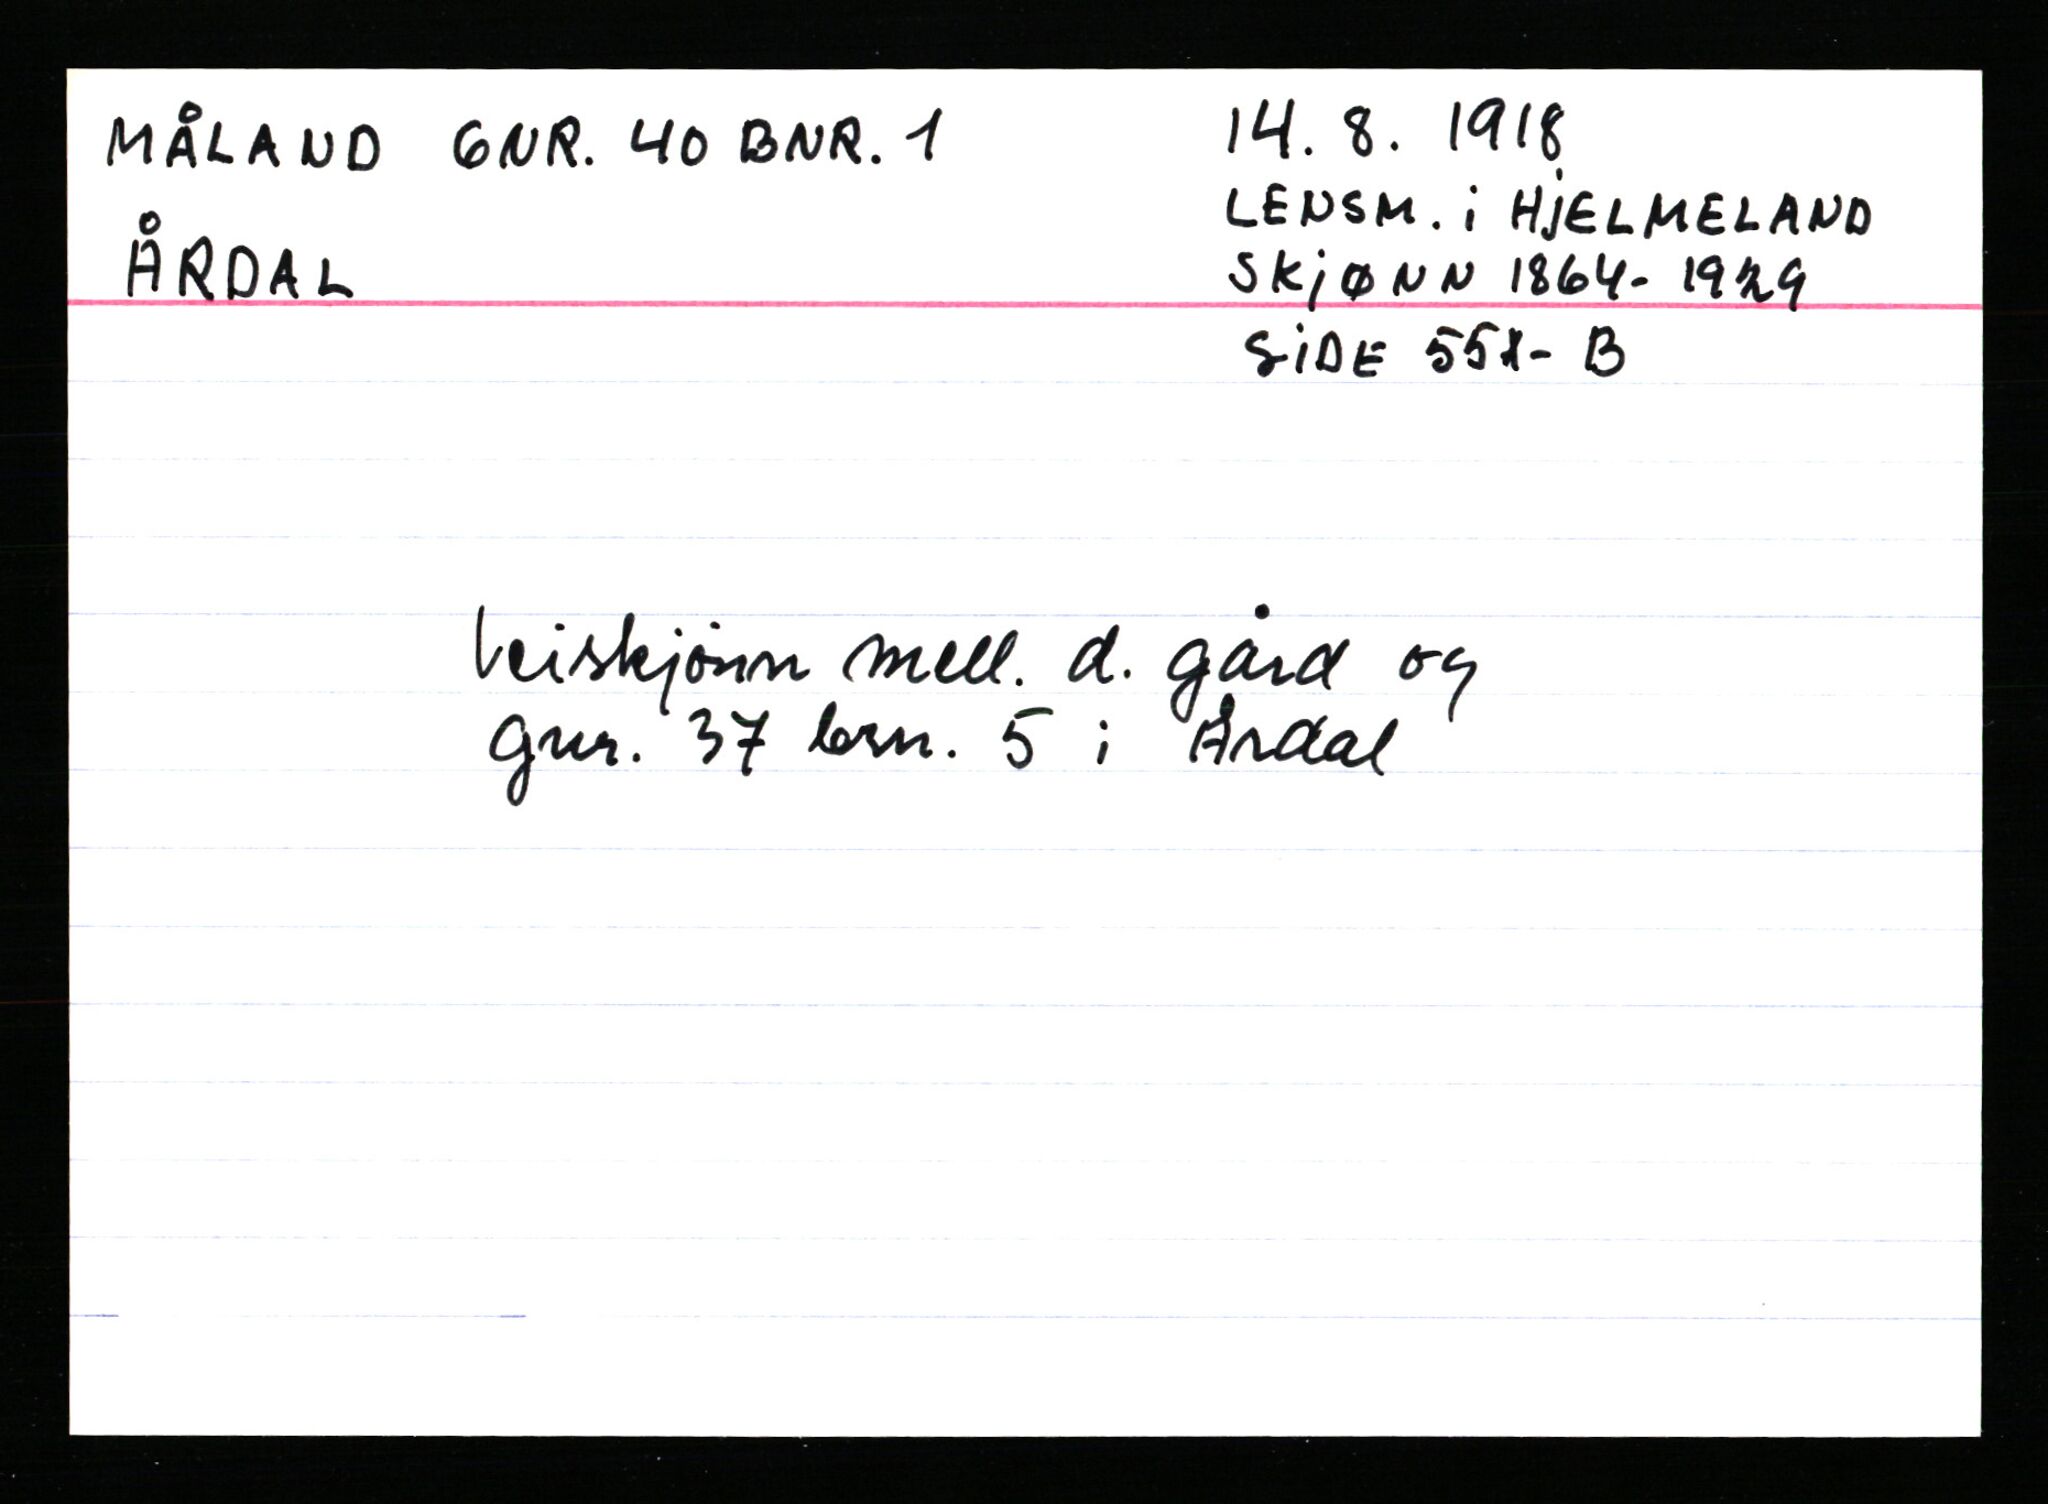 MÅLAND GNR. 40 BNR. 1
ÅRDAL
14. 8. 1918
LENSM. i HJELMELAND
SKJØNN 1864- 1929
SIDE 551- B
Veiskjønn mell. d. gård og
gnr. 37 brn. 5 i Årdal